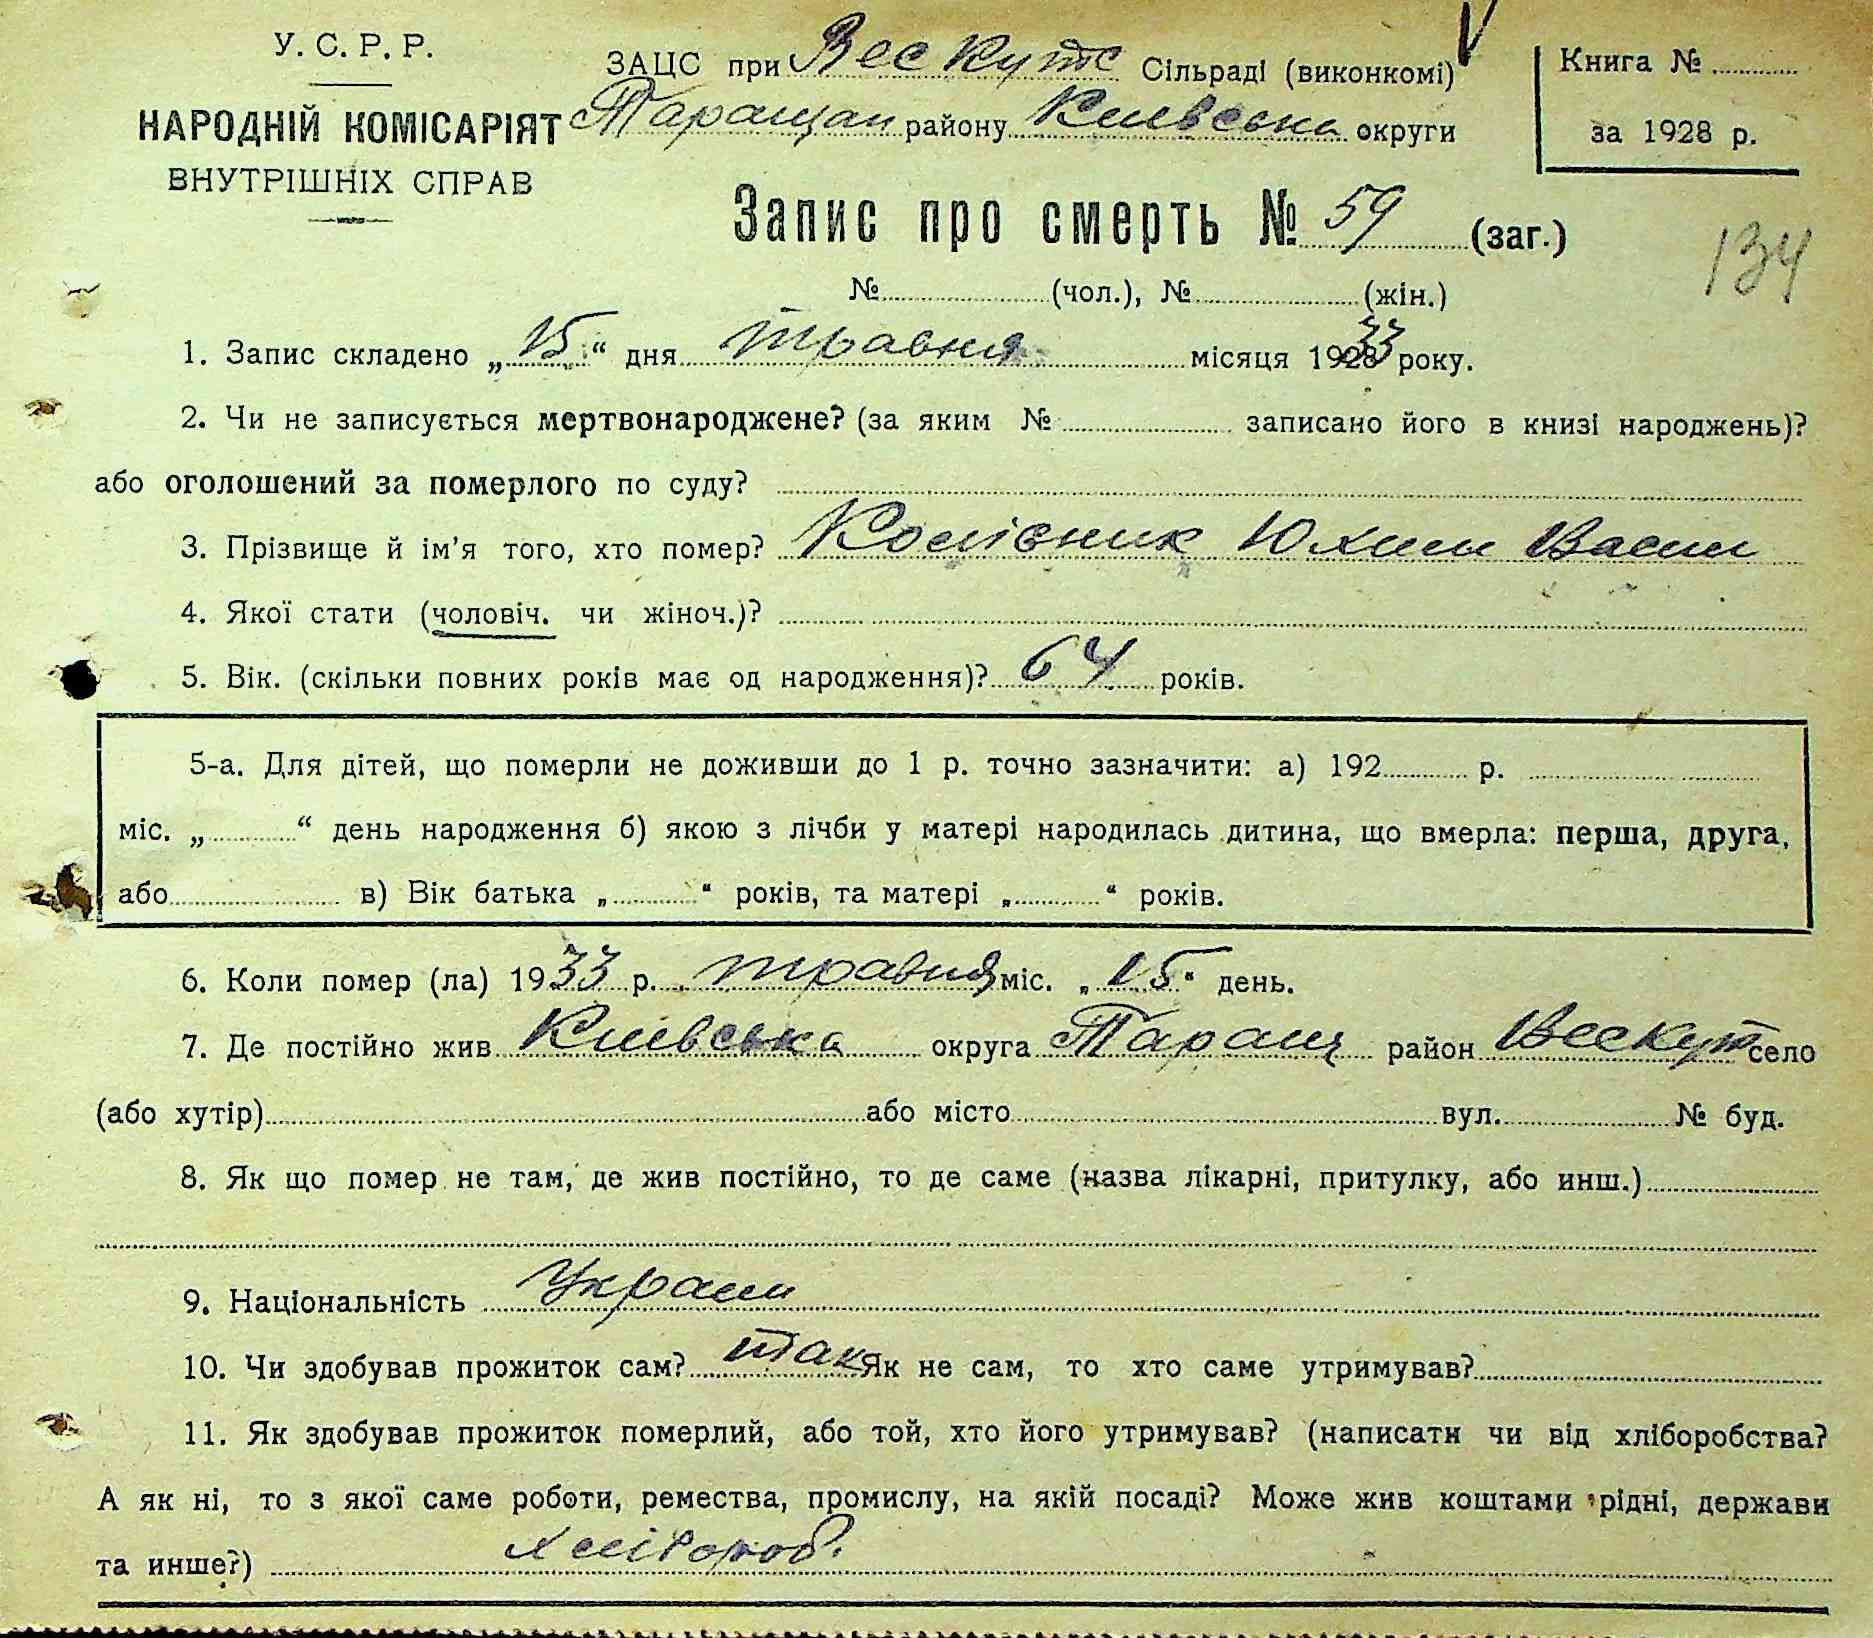 У. С. Р. Р.
НАРОДНІЙ КОМІСАРІЯТ
ВНУТРІШНІХ СПРАВ
ЗАЦС при Вескутс Сільраді (виконкомі)
Таращан району Київська округи
Книга №
за 1928 р.
Запис про смерть № 59 (заг.)
134
№ (чол.), № (жін.)
1. Запис складено „15“ дня травня місяця 192833 року.
2. Чи не записується мертвонароджене? (за яким № записано його в книзі народжень)?
або оголошений за померлого по суду?
3. Прізвище й ім'я того, хто помер? Колісник Юхим Васил
4. Якої стати (чоловіч. чи жіноч.)?
5. Вік. (скільки повних років має од народження)? 64 років.
5-а. Для дітей, що померли не доживши до 1 р. точно зазначити: а) 192 р.
міс. „ “ день народження б) якою з лічби у матері народилась дитина, що вмерла: перша, друга,
або в) Вік батька „ “ років, та матері „ “ років.
6. Коли помер (ла) 1933 р. травня міс. „15“ день.
7. Де постійно жив Київська округа Таращ район Вескут село
(або хутір) або місто вул. № буд.
8. Як що помер не там, де жив постійно, то де саме (назва лікарні, притулку, або инш.)
9. Національність Україн
10. Чи здобував прожиток сам? так Як не сам, то хто саме утримував?
11. Як здобував прожиток померлий, або той, хто його утримував? (написати чи від хліборобства?
А як ні, то з якої саме роботи, ремества, промислу, на якій посаді? Може жив коштами рідні, держави
та инше?) хлібороб.